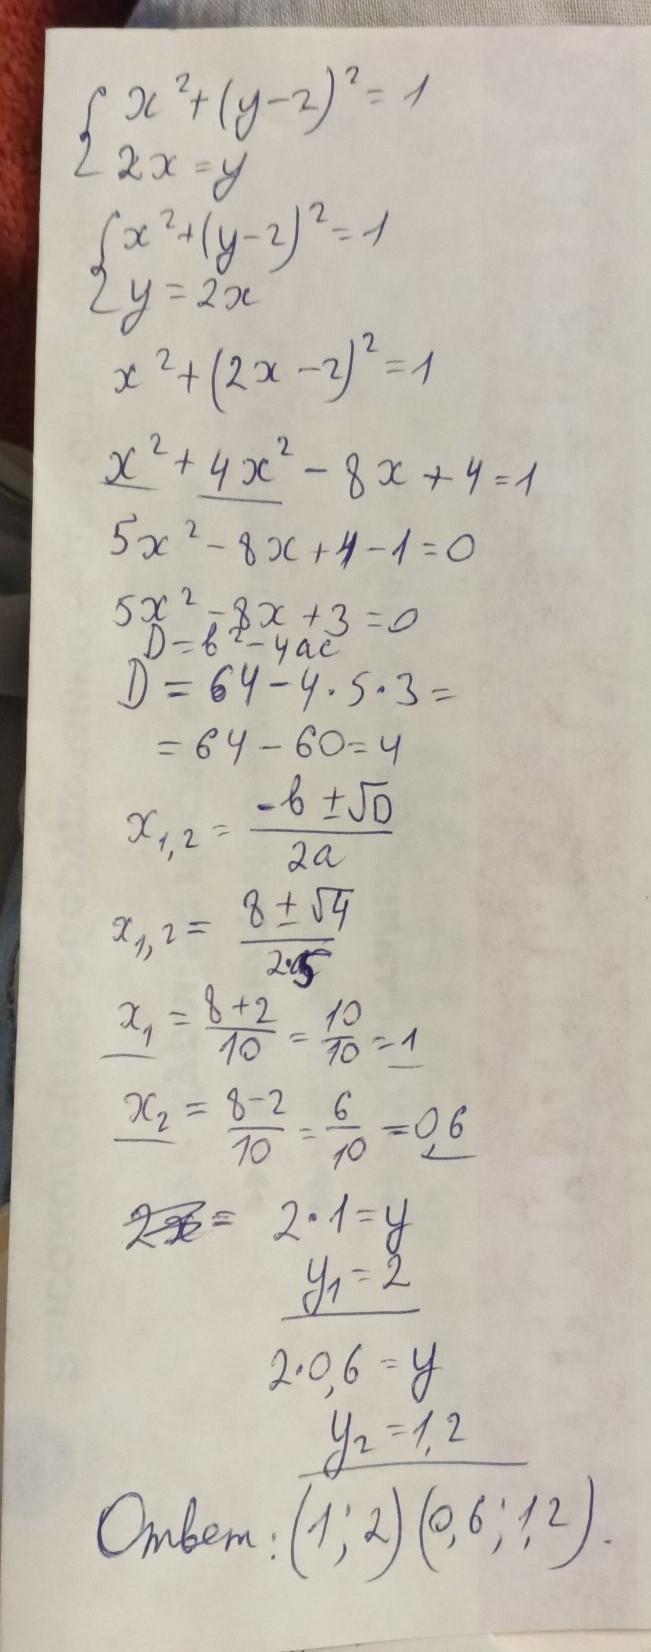 { x² + (y-2)² = 1
2x = y
{ x² + (y-2)² = 1
y = 2x
x² + (2x - 2)² = 1
x² + 4x² - 8x + 4 = 1
5x² - 8x + 4 - 1 = 0
5x² - 8x + 3 = 0
D = b² - 4ac
D = 64 - 4 · 5 · 3 =
= 64 - 60 = 4
x₁,₂ = (-b ± √D) / 2a
x₁,₂ = (8 ± √4) / 2·5
x₁ = (8+2)/10 = 10/10 = 1
x₂ = (8-2)/10 = 6/10 = 0,6
2x = 2 · 1 = y
y₁ = 2
2 · 0,6 = y
y₂ = 1,2
Ответ: (1; 2) (0,6; 1,2).